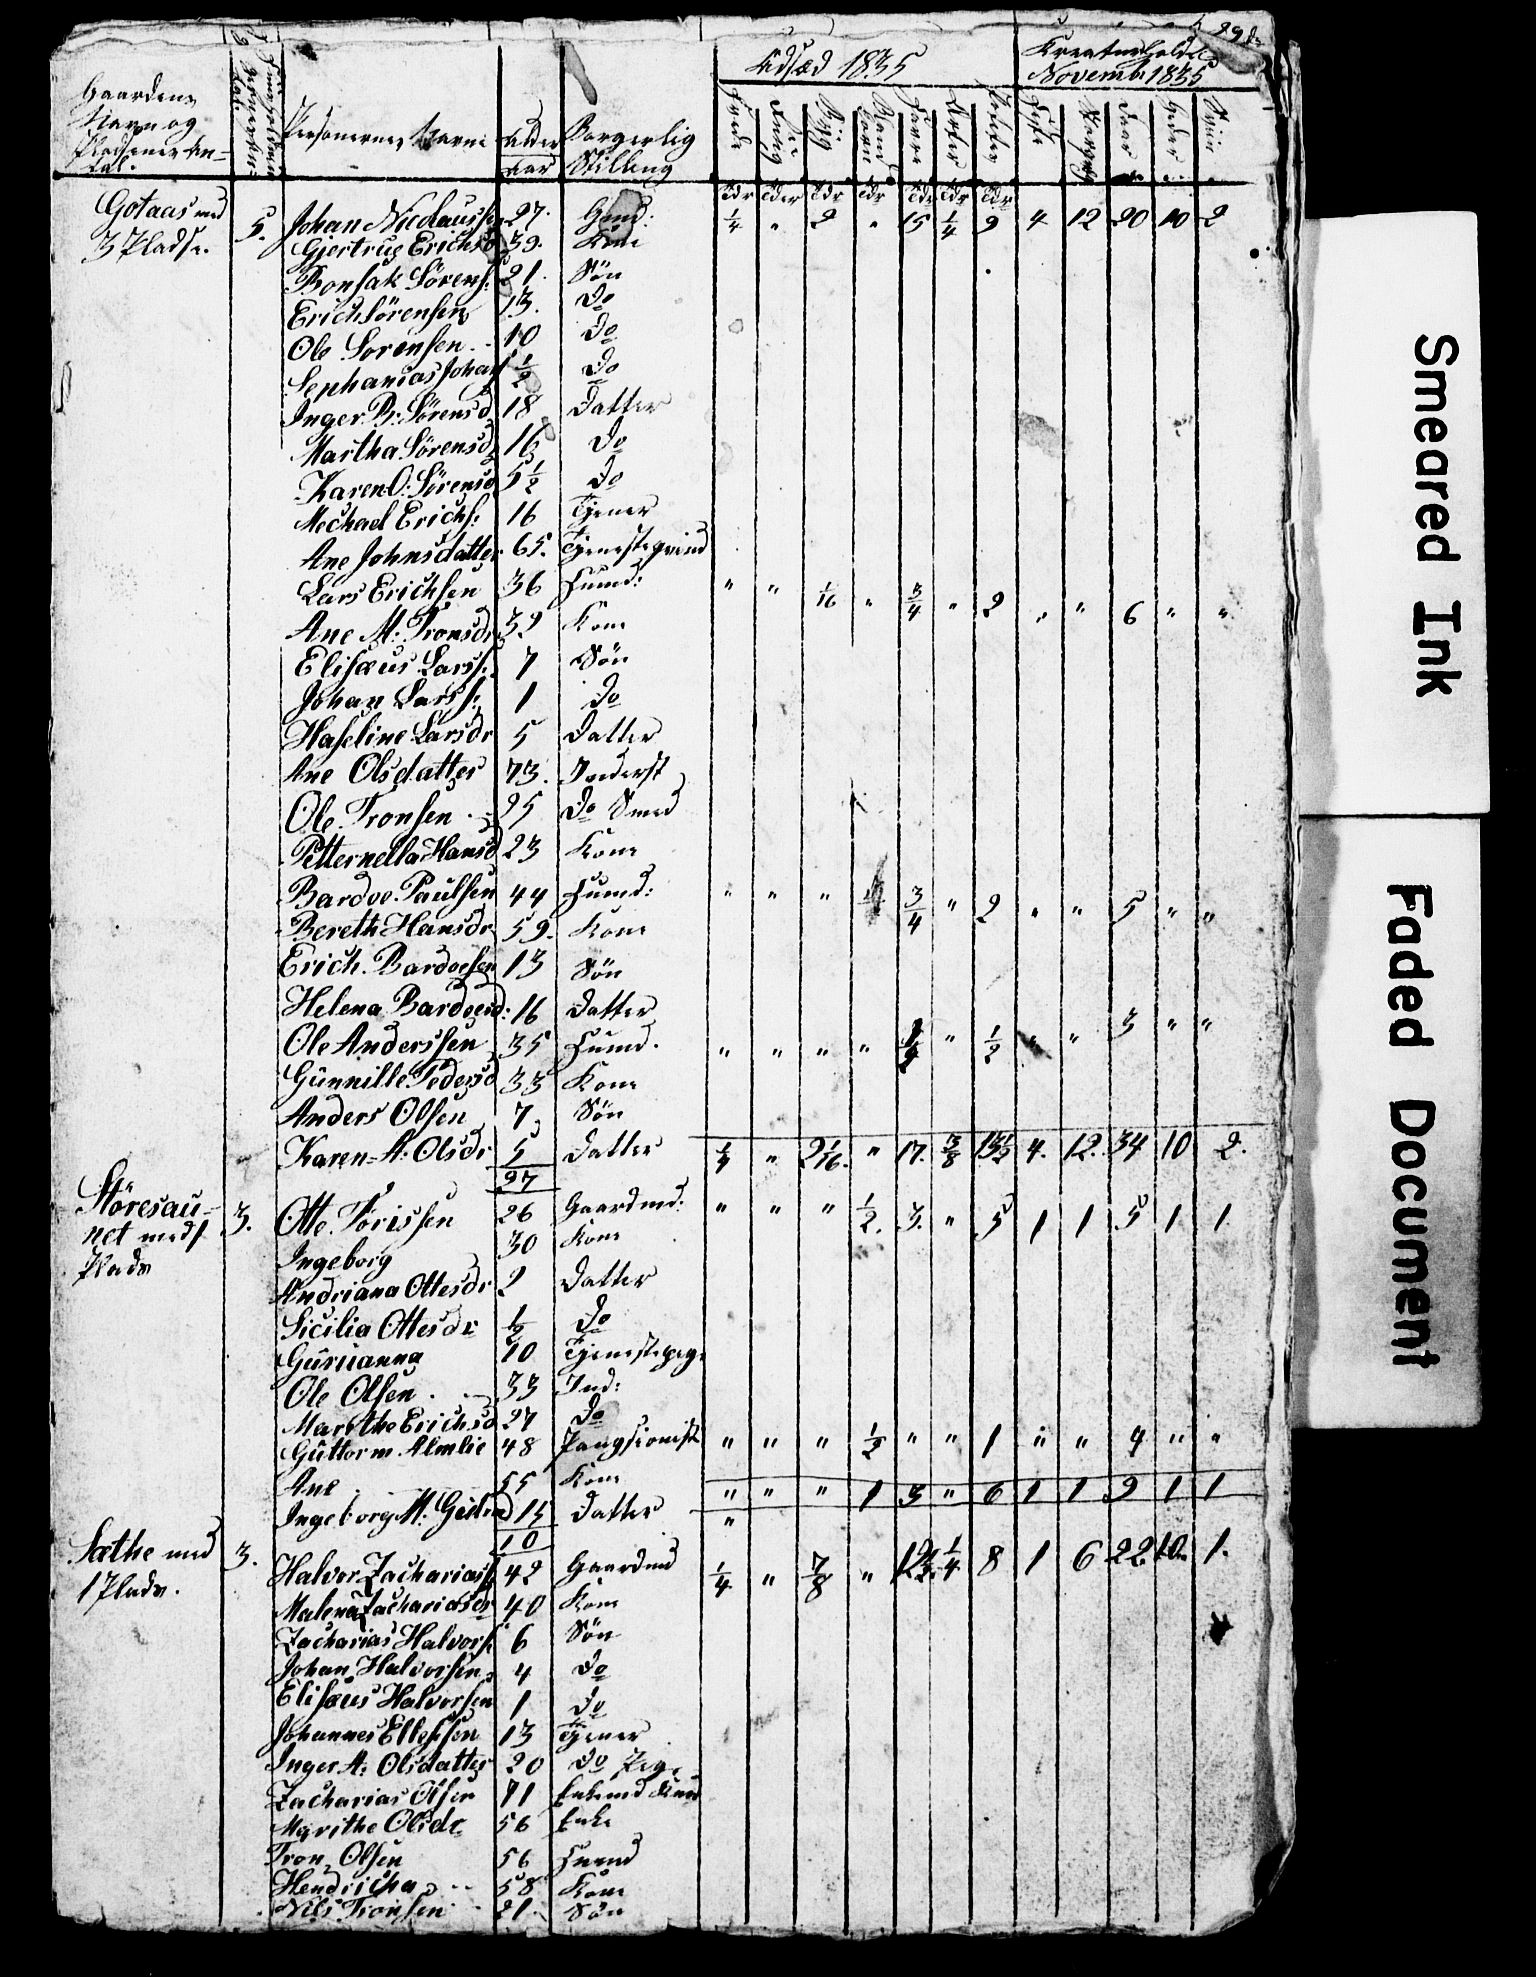 Udsæd 1835
Novembr 1835
Gaardens Navn og
Personernes Navne
Alder
Aar
Borgerlig Stilling
Hveede
Rug
Byg
Havre
Heste
Faar
Sviin
Tdr Tdr Tdr Tdr Tdr Tdr Tdr
Gotaas med 5. Johan Nicolaussen 27. Gmd: 1/4 " 2 " 15 1/4 9 4 12 20 10 2
3 Pladse. Gjertrug Erichsd 39. Kone
Bonsak Sörens: 21. Sön
Erich Sörensen 13. Do
Ole Sorensen 10 Do
Sephanias Johans 1/2 Do
Inger B: Sörensd 18 Datter
Martha Sörensd 16 Do
Karen O: Sörensd 5 1/2 Do
Mechael Erichs: 16 Tjener
Ane Johnsdatter 65. Tjenesteqvind
Lars Erichsen 36 Huusmd: " " 1/16 " 3/4 " 2 " " 6 " "
Ane M: Tronsdr 39 Kone
Elisæus Larss: 7 Sön
Johan Larss: 1 Do
Haseline Larsdr 5 Datter
Ane Olsdatter 73. Inderst
Ole Tronsen 25 Do Smed
Petternella Hansd 23 Kone
Bardoe Paulsen 44 Huusmd: " " " 3/4 " 2 " " 5 " "
Bereth Hansdr 59. Kone
Erich Bardoesen 13 Sön
Helena Bardoesd: 16 Datter
Ole Anderssen 35 Huusmd. " " " " " 1/2 " " 3 " "
Gunnille Pedersd 33 Kone
Anders Olsen 7 Sön
Karen A. Olsdr 5 Datter 1/4 " 2 1/16. " 17. 3/8 13 1/2 4. 12. 34 10 2.
27
Störesau- 3. Otte Törissen 26 Gaardmd: " " " 1/2. 3. " 5 1 1 5 1 1
net med 1
Plads
Ingeborg 30 Kone
Andriana Ottesdr 2 Datter
Sicilia Ottesdr 1/2 Do
Guruanna 10 Tjenestepige
Ole Olsen 33 Ind:
Marithe Erichsd 27 Do
Guttorm Almlie 48 Pangsionist " " " 1/2 " " 1 " " 4 " "
Ane 55 Kone " " " 1 3 " 6 1 1 9 1 1
Ingeborg M. 15 Datter "
10
Sæthe med 3. Halvor Zachariass 42 Gaardmd 1/4 " 7/8 " 12 1/2 1/4 8 1 6 22 10 1.
1 Plads. Malena Zachariasdr 40 Kone
Zacharias Halvors: 6 Sön
Johan Halvorsen 4 Do
Elisæus Halvorsen 1 Do
Johannes Ellefsen 13 Tjener
Inger A: Olsdatter 20 Do Pige
Zacharias Olsen 71
Marithe Olsdr 56 Enke
Tron Olsen 56 Huusmd
Hendricha 58 Kone
Nils Tronsen 21. Sön
Smeared Ink
Faded Document